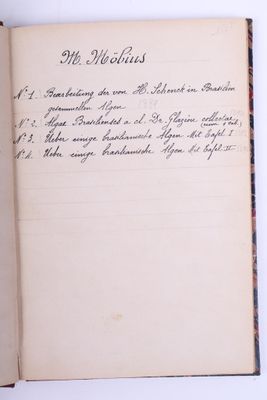 M. Möbius
No 1. Bearbeitung der von H. Schenck in Brasilien
gesammelten Algen 1889
No 2. Algae Brasilienses a cl. Dr. Glaziou collectae
(cum 1 tab.)
No 3. Ueber einige brasilianische Algen Mit Tafel I
No 4. Ueber einige brasilianische Algen Mit Tafel II